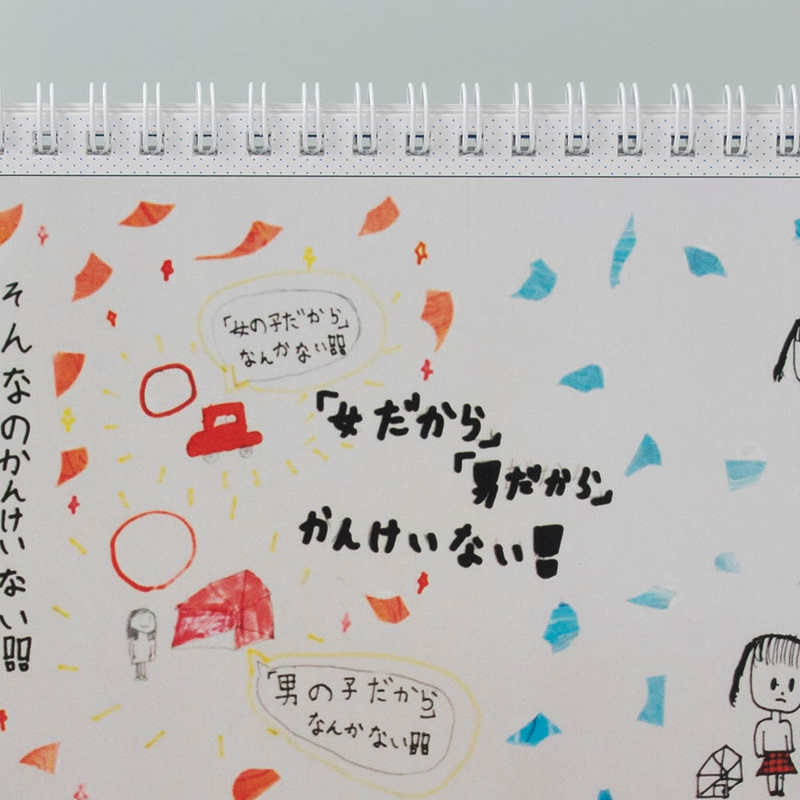 そんなのかんけいない!!
「女の子だから」
なんかない!!
「女だから」
「男だから」
かんけいない!
「男の子だから」
なんかない!!